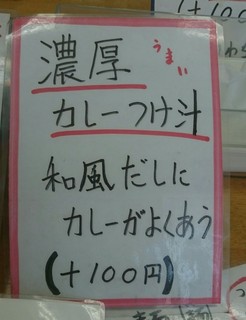 1+100
濃厚
うまい
カレーつけ汁
和風だしに
カレーがよくあう
(+100円)